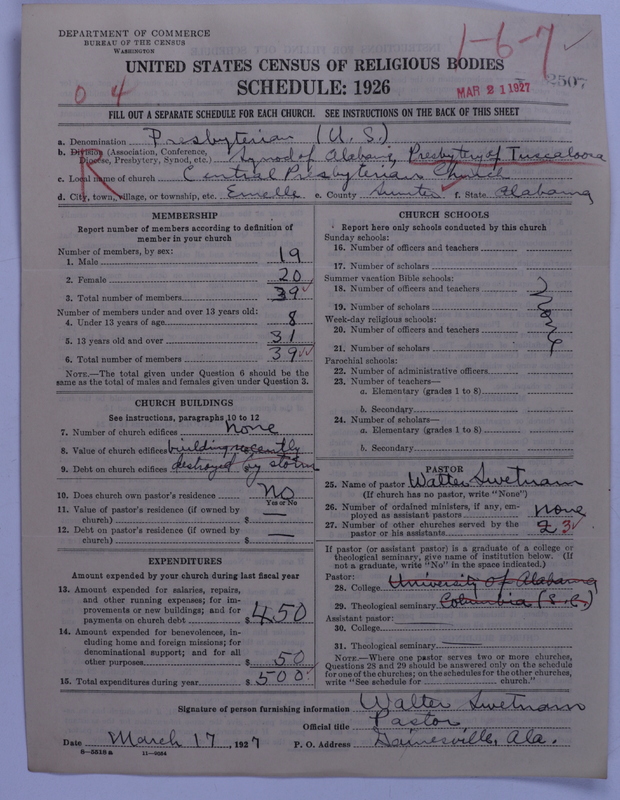 DEPARTMENT OF COMMERCE
BUREAU OF THE CENSUS
WASHINGTON
1-6-7
UNITED STATES CENSUS OF RELIGIOUS BODIES
SCHEDULE: 1926
0 4
MAR 21 1927
2507
FILL OUT A SEPARATE SCHEDULE FOR EACH CHURCH. SEE INSTRUCTIONS ON THE BACK OF THIS SHEET
a. Denomination Presbyterian (U.S.)
b. Division (Association, Conference, Diocese, Presbytery, Synod, etc.) Synod of Alabama, Presbytery of Tuscaloosa
R
c. Local name of church Central Presbyterian Church
d. City, town, village, or township, etc. Emelle e. County Sumter f. State Alabama
MEMBERSHIP
Report number of members according to definition of
member in your church
Number of members, by sex:
1. Male 19
2. Female 20
3. Total number of members 39
Number of members under and over 13 years old:
4. Under 13 years of age 8
5. 13 years old and over 31
6. Total number of members 39
NOTE.—The total given under Question 6 should be the
same as the total of males and females given under Question 3.
CHURCH BUILDINGS
See instructions, paragraphs 10 to 12
7. Number of church edifices none
8. Value of church edifices building recently
9. Debt on church edifices destroyed by storm
10. Does church own pastor's residence No
Yes or No
11. Value of pastor's residence (if owned by
church) $ —
12. Debt on pastor's residence (if owned by
church) $ —
EXPENDITURES
Amount expended by your church during last fiscal year
13. Amount expended for salaries, repairs,
and other running expenses; for im-
provements or new buildings; and for
payments on church debt $ 450
14. Amount expended for benevolences, in-
cluding home and foreign missions; for
denominational support; and for all
other purposes $ 50
15. Total expenditures during year $ 500
CHURCH SCHOOLS
Report here only schools conducted by this church
Sunday schools:
16. Number of officers and teachers
17. Number of scholars
Summer vacation Bible schools:
18. Number of officers and teachers
19. Number of scholars
Week-day religious schools:
20. Number of officers and teachers
21. Number of scholars
none
Parochial schools:
22. Number of administrative officers
23. Number of teachers—
a. Elementary (grades 1 to 8)
b. Secondary
24. Number of scholars—
a. Elementary (grades 1 to 8)
b. Secondary
PASTOR
25. Name of pastor Walter Swetnam
(If church has no pastor, write "None")
26. Number of ordained ministers, if any, em-
ployed as assistant pastors none
27. Number of other churches served by the
pastor or his assistants 2 3
If pastor (or assistant pastor) is a graduate of a college or
theological seminary, give name of institution below. (If
not a graduate, write "No" in the space indicated.)
Pastor:
28. College University of Alabama
29. Theological seminary Columbia (S.C.)
Assistant pastor:
30. College
31. Theological seminary
NOTE.—Where one pastor serves two or more churches,
Questions 28 and 29 should be answered only on the schedule
for one of the churches; on the schedules for the other churches,
write "See schedule for church."
Signature of person furnishing information Walter Swetnam
Official title Pastor
Date March 17, 1927 P. O. Address Gainesville, Ala.
8—5518 a 11—9064